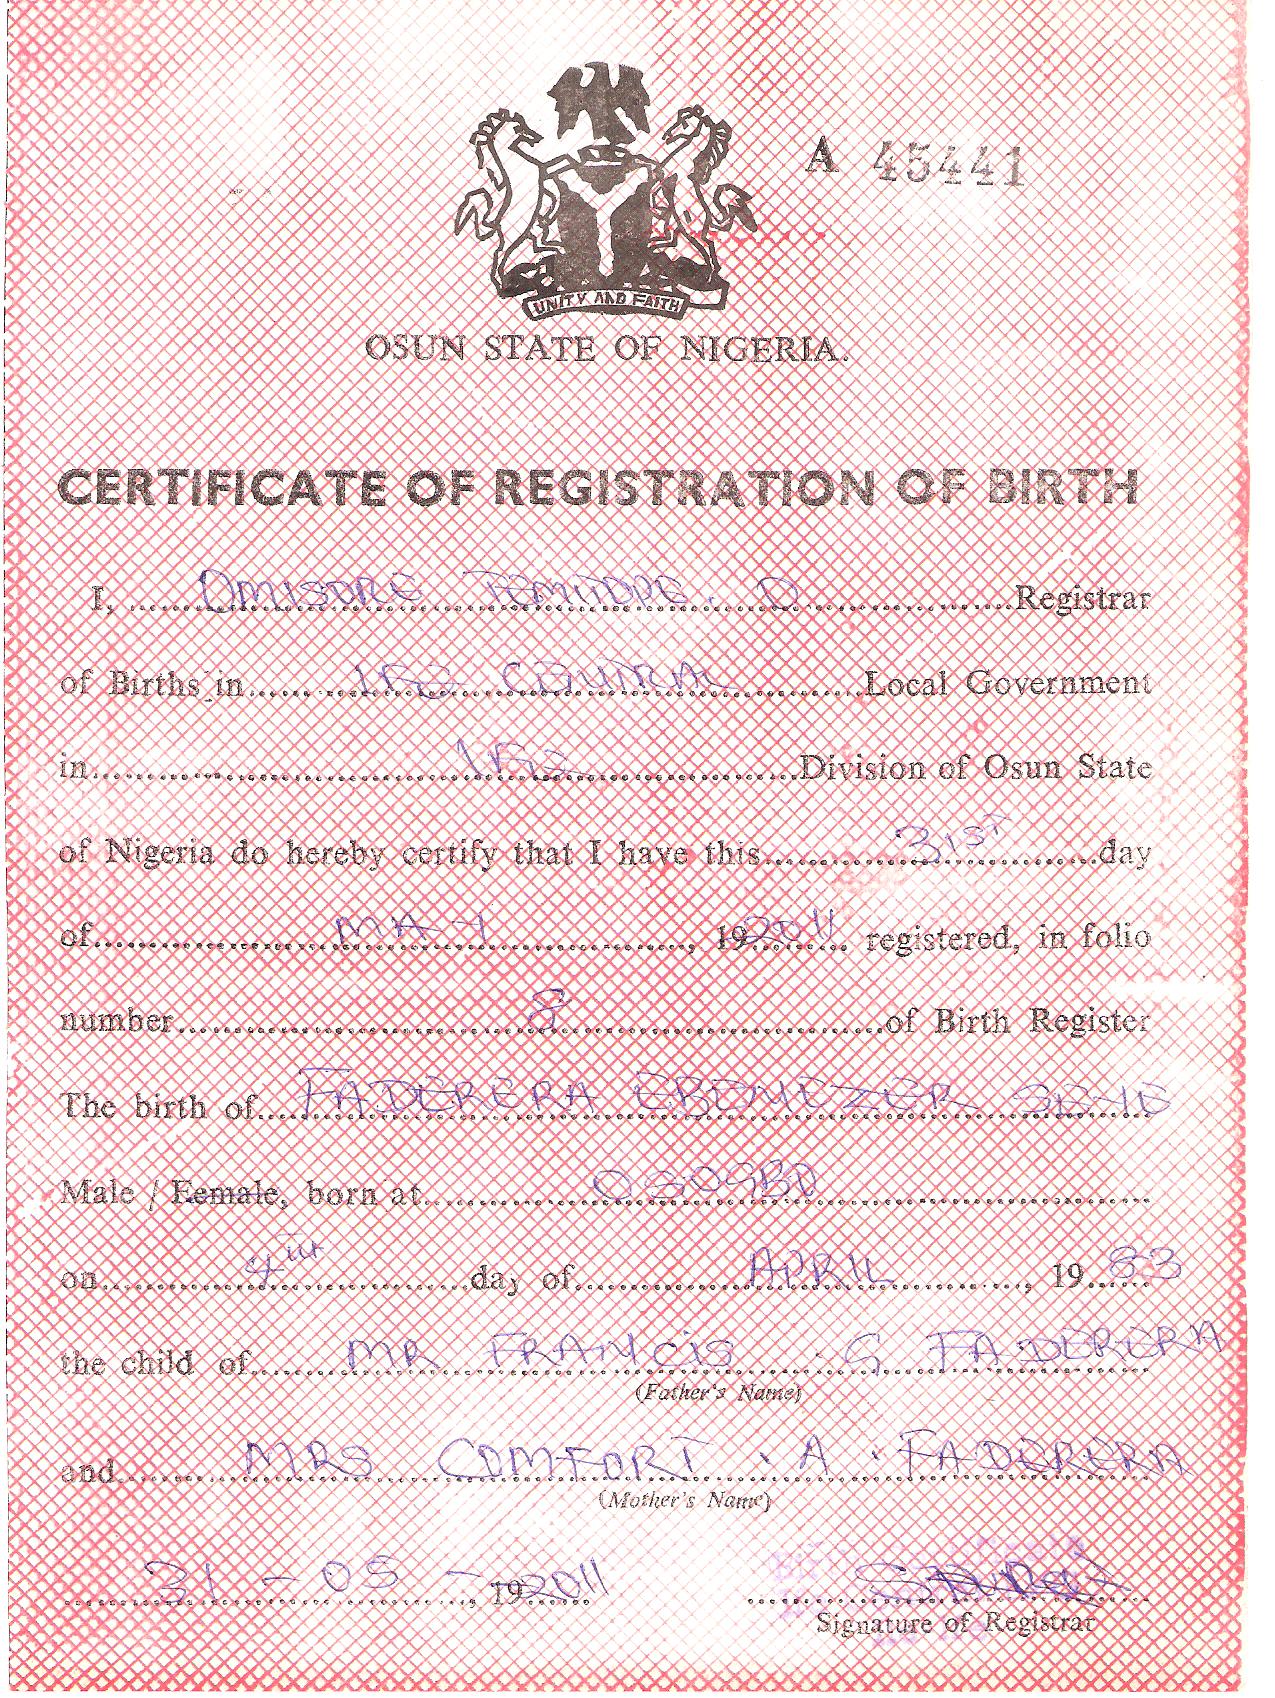 A 45441
UNITY AND FAITH
OSUN STATE OF NIGERIA.
CERTIFICATE OF REGISTRATION OF BIRTH
I, OMISORE TEMITOPE. O Registrar
of Births in IFE CENTRAL Local Government
in IFE Division of Osun State
of Nigeria do hereby certify that I have this 31st day
of MAY, 19 2011 registered, in folio
number 8 of Birth Register
The birth of FADERERA EBENEZER SEYE
Male / Female, born at OSOGBO
on 4TH day of APRIL, 19 83
the child of MR FRANCIS . G FADERERA
(Father's Name)
and MRS COMFORT . A . FADERERA
(Mother's Name)
31 - 05 - , 19 2011
Signature of Registrar